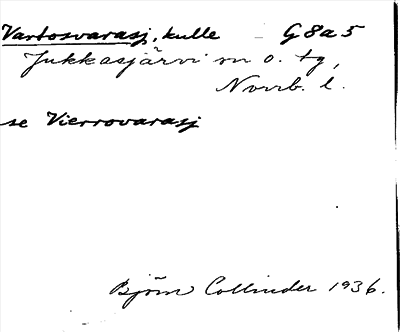 Vartosvarasj, kulle G8a5
Jukkasjärvi sn o. tg,
Norrb. l.
se Vierrovarasj
Björn Collinder 1936.